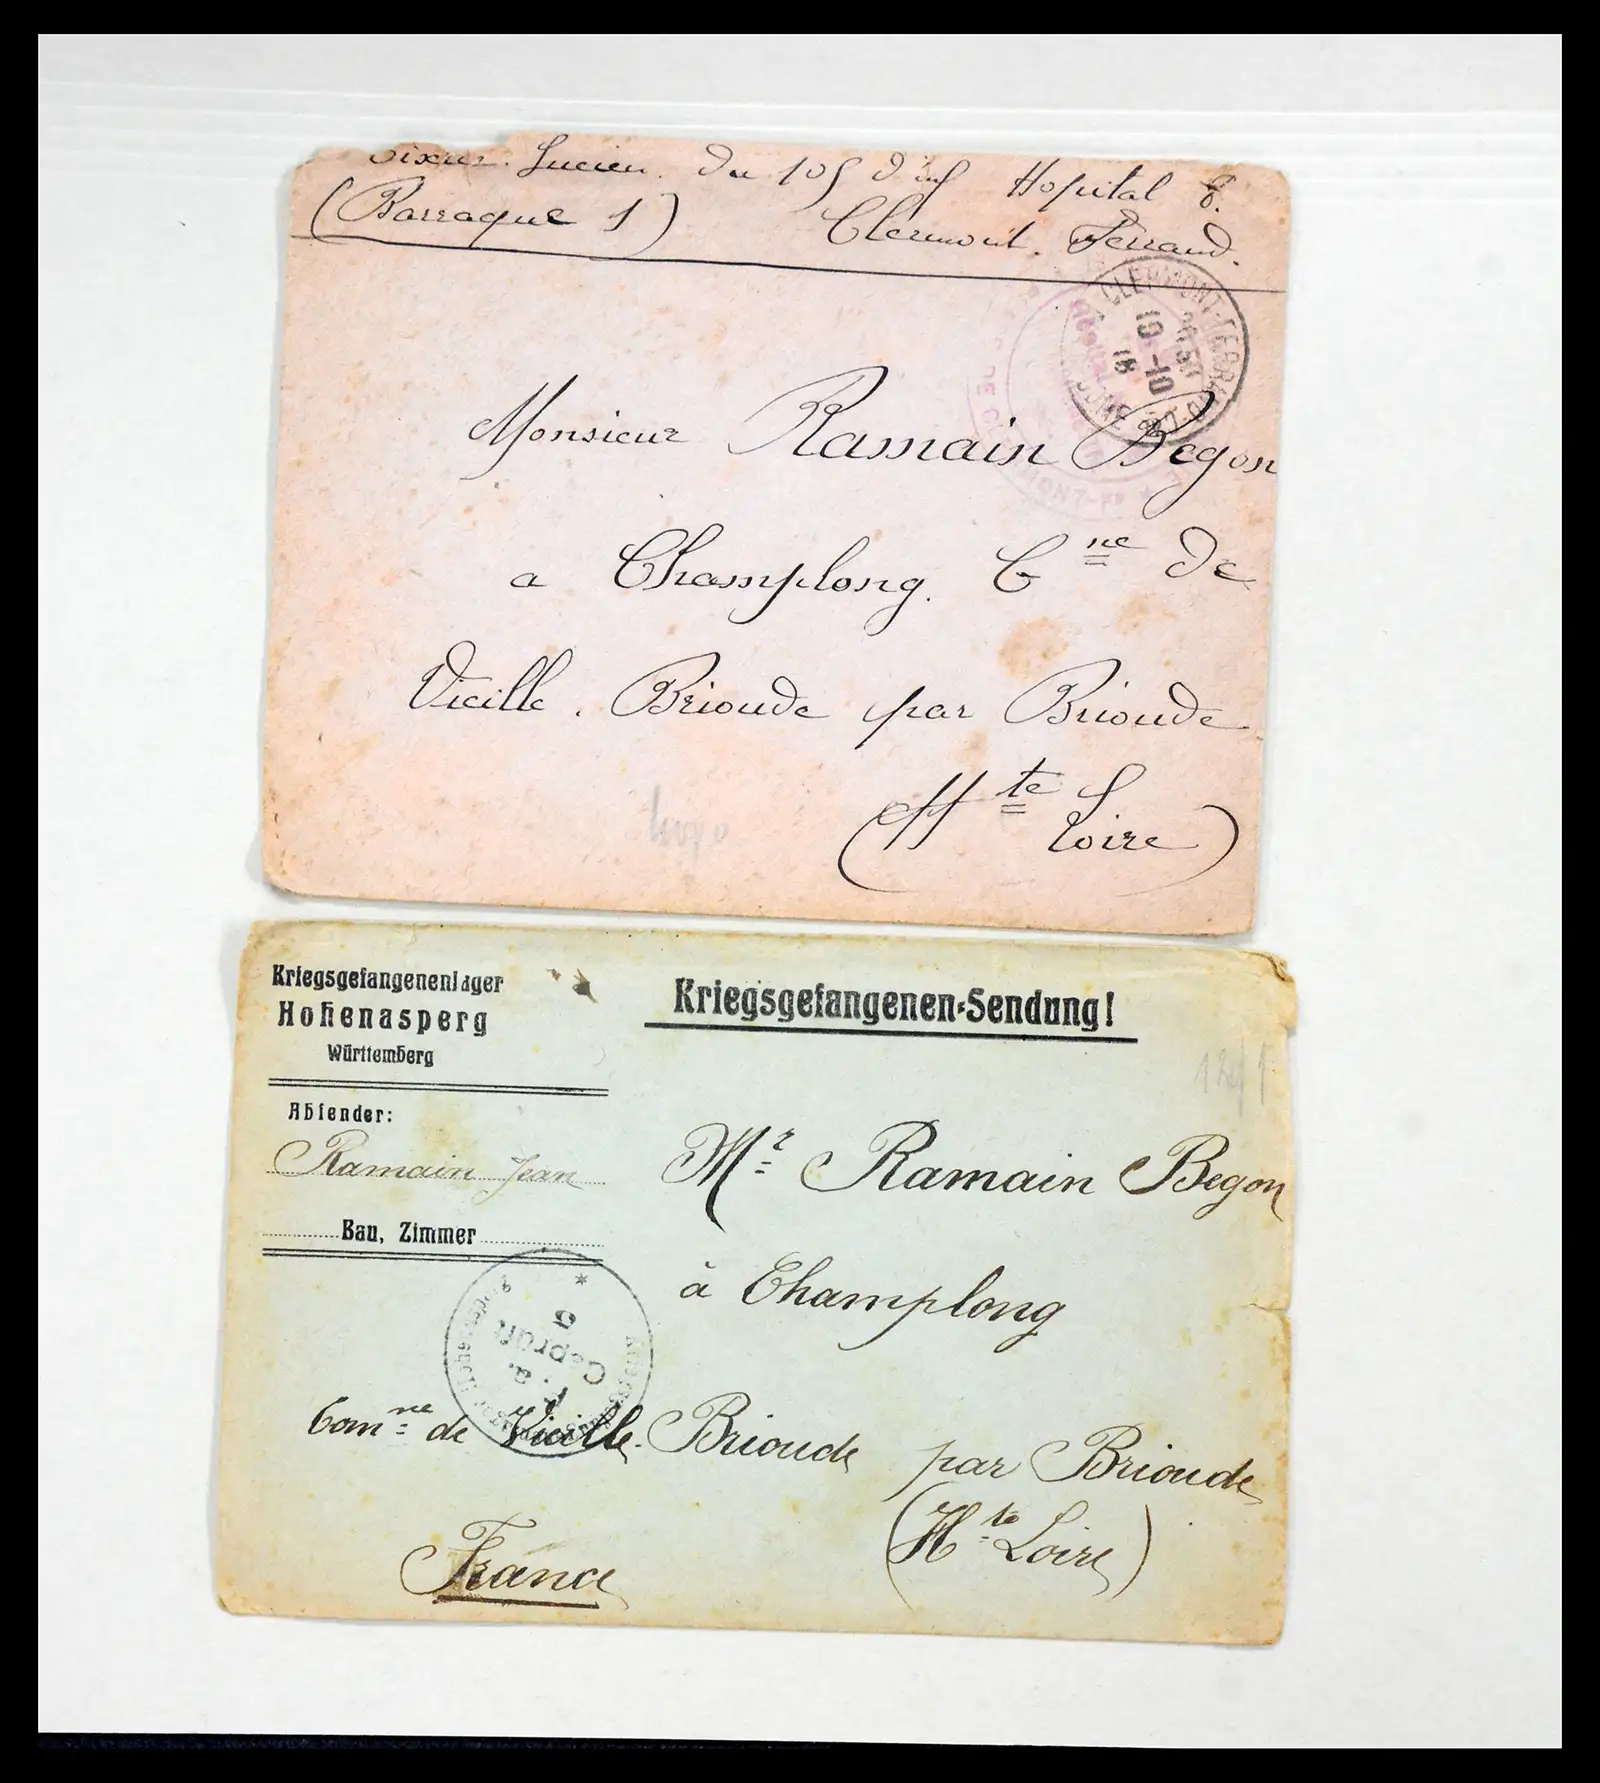 Lucien. du 105 d'inf Hopital 8.
(Barraque 1) Clermont. Ferrand.
CLERMONT-FERRAND
19 -10
18
Monsieur Ramain Begon
a Champlong. Cne de
Vieille. Brioude par Brioude
(Hte Loire)
Kriegsgefangenenlager
Hohenasperg
Württemberg
Kriegsgefangenen-Sendung!
Absender:
Ramain Jean
Bau, Zimmer
Mr Ramain Begon
à Champlong
Comne de Vieille. Brioude par Brioude
(Hte Loire)
France
Kriegsgefangenenlager Hohenasperg
F. a.
Geprüft